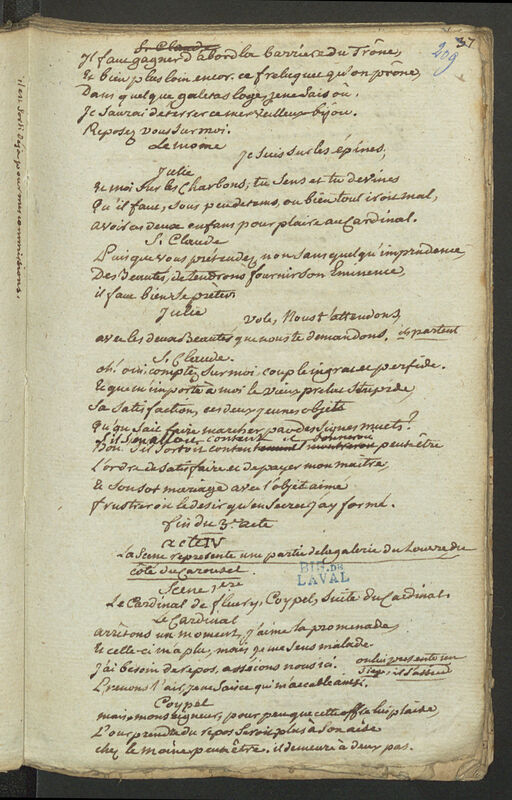 37
209
St Claude
Il faut gagner d'abord la barriere du Trône,
Et bien plus loin encor. ce freluquet qu'on prône,
Dans quelque galetas loge, je ne sais ou.
Je saurai deterrer ce merveilleux bijou.
Reposez vous sur moi.
Le mome
Je suis sur les épines,
Julie
Et moi sur les Charbons; tu sens et tu devines
Qu'il faut, sous peu de tems, ou bien tout iroit mal,
avoir ces deux enfans pour plaire au Cardinal.
St Claude
Puisque vous prétendez, non sans quelqu'imprudence,
Des Beautés, de tendrons fournir son Eminence
il faut bien s'y prêter.
Julie
vole, Nous t'attendons,
avec les deux Beautés que nous te demandons. ils partent
St Claude.
oh! oui comptez sur moi couple ingrat et perfide.
Et que m'importe à moi le vieux prelat stupide,
Sa satisfaction, ces deux jeunes objets
Qu'on sait faire marcher par des signes muets?
S'il s'en alloit content il donneroit
Bon. S'il sortoit content peut être
L'ordre de satisfaire et de payer mon maitre,
Et son sot mariage avec l'objet aimé
frustreroit le desir qu'en secret j'ay formé.
fin du 3e acte
acte IV
La Scene represente une partie de la galerie du Louvre du
coté du Carousel.
Scene 1ere
Le Cardinal de fleury, Coypel, suite du Cardinal.
Le Cardinal
arrêtons un moment, j'aime la promenade,
Et celle-ci m'a plu, mais je me sens malade.
J'ai besoin de repos, asséions nous ici. on lui presente un
siege, il s'assied
Prenons l'air, je ne sais ce qui m'accable ainsi.
Coypel
mais monseigneur, pour peu que cette offre lui plaise,
L'our prendre du repos seroit plus à son aise
chez le moine peut être. il demeure à deux pas.
BIB. DE
LAVAL